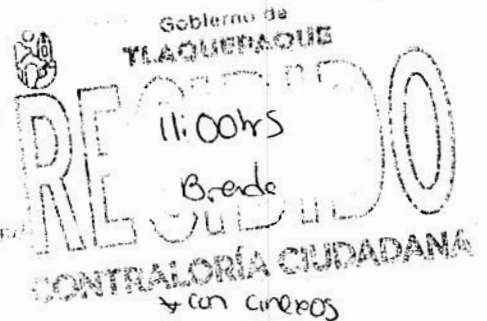 Gobierno de
TLAQUEPAQUE
RECIBIDO
11:00hrs
Brenda
CONTRALORÍA CIUDADANA
+ con anexos